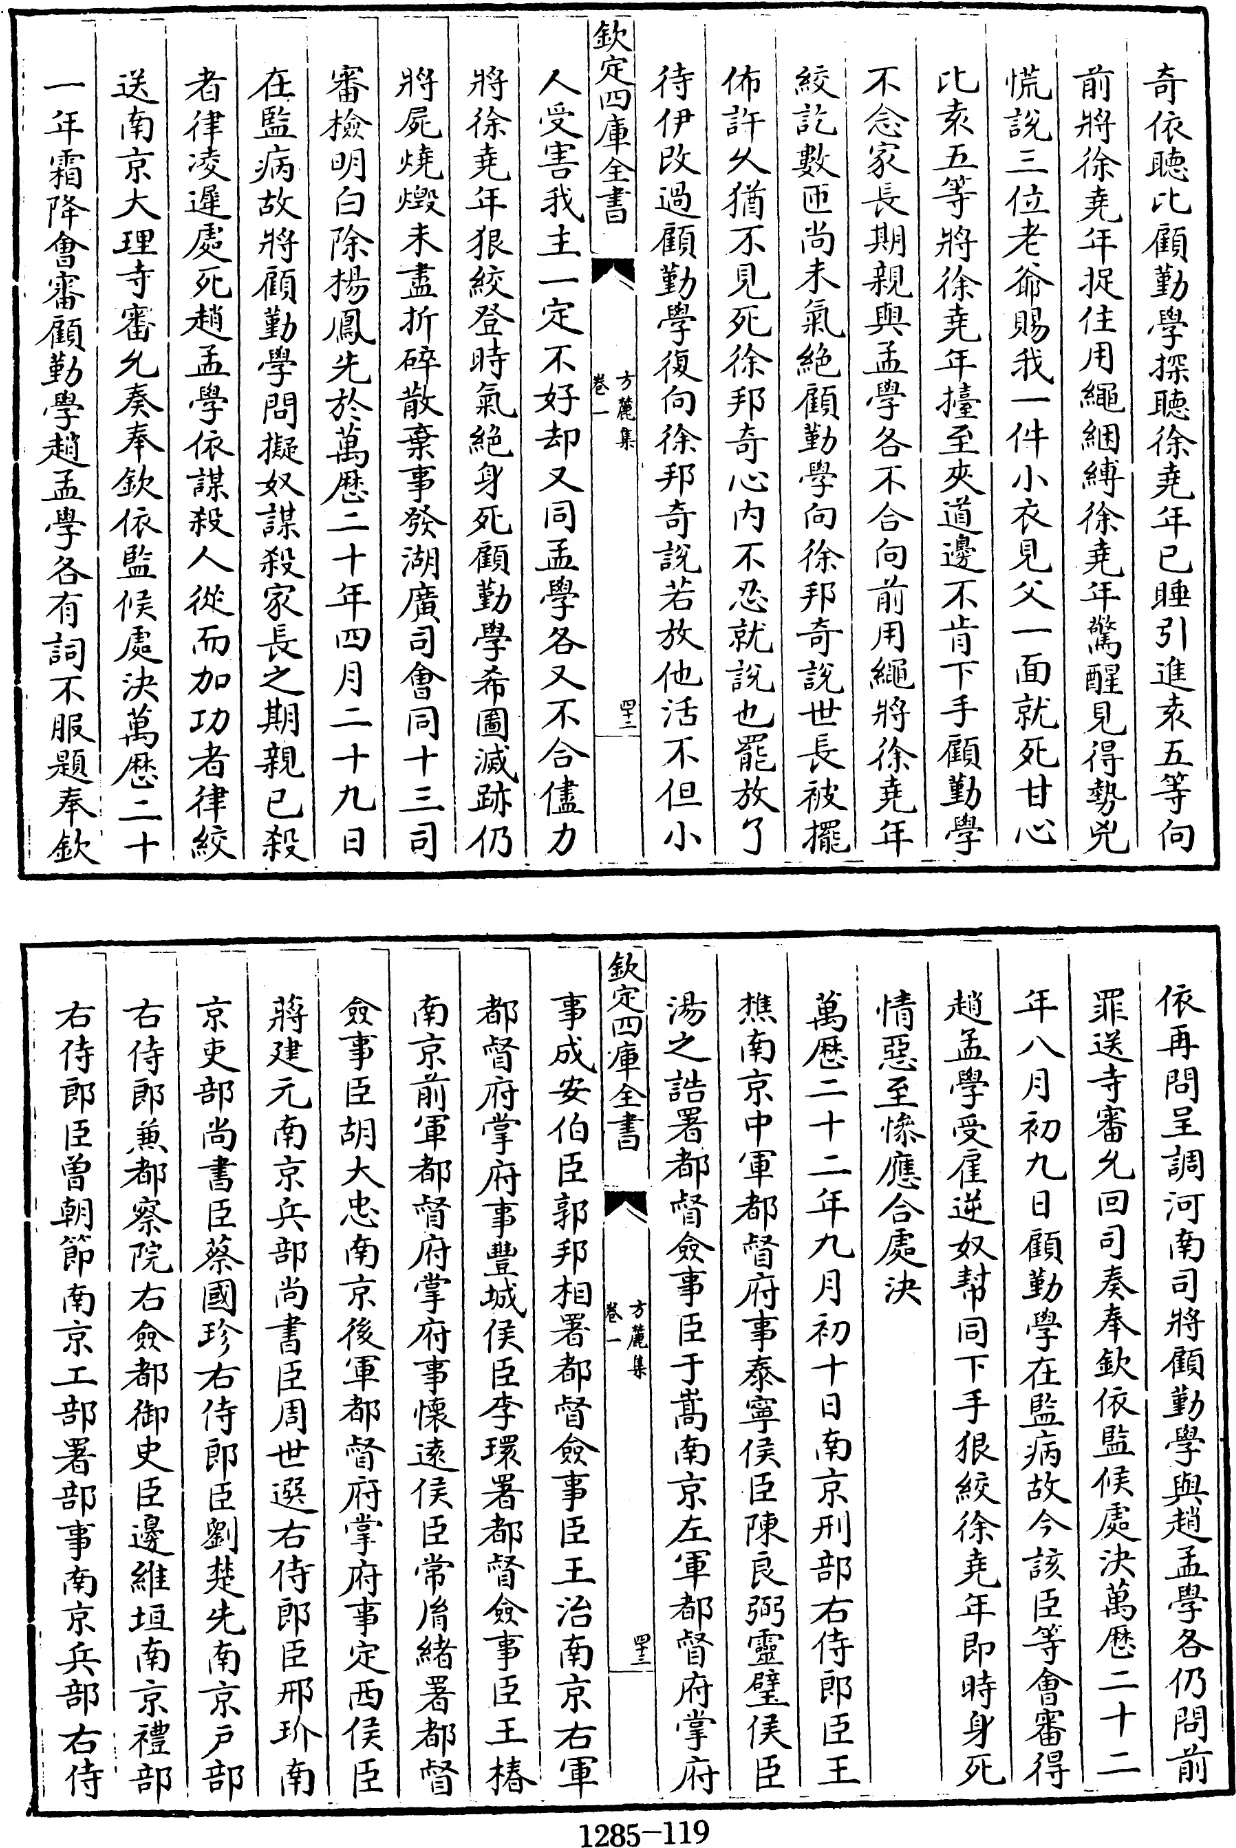 奇依聴比顧勤學探聴徐堯年已睡引進袁五等向
前將徐堯年捉住用繩綑縛徐堯年驚醒見得勢兇
慌說三位老爺賜我一件小衣見父一面就死甘心
比袁五等將徐堯年擡至夾道邊不肯下手顧勤學
不念家長期親與孟學各不合向前用繩將徐堯年
絞訖數匝尚未氣絶顧勤學向徐邦奇說世長被擺
佈許久猶不見死徐邦奇心內不忍就說也罷放了
待伊改過顧勤學復向徐邦奇說若放他活不但小
欽定四庫全書
方麓集
卷一
四十二
人受害我主一定不好却又同孟學各又不合儘力
將徐堯年狠絞登時氣絶身死顧勤學希圖滅跡仍
將屍燒燬未盡折碎散棄事發湖廣司會同十三司
審檢明白除楊鳳先於萬歷二十年四月二十九日
在監病故將顧勤學問擬奴謀殺家長之期親已殺
者律凌遲處死趙孟學依謀殺人從而加功者律絞
送南京大理寺審允奏奉欽依監候處決萬歷二十
一年霜降會審顧勤學趙孟學各有詞不服題奉欽
依再問呈調河南司將顧勤學與趙孟學各仍問前
罪送寺審允回司奏奉欽依監候處決萬歷二十二
年八月初九日顧勤學在監病故今該臣等會審得
趙孟學受雇逆奴幇同下手狠絞徐堯年即時身死
情惡至慘應合處決
萬歷二十二年九月初十日南京刑部右侍郎臣王
樵南京中軍都督府事泰寧侯臣陳良弼靈璧侯臣
湯之誥署都督僉事臣于嵩南京左軍都督府掌府
欽定四庫全書
方麓集
卷一
四十三
事成安伯臣郭邦相署都督僉事臣王治南京右軍
都督府掌府事豐城侯臣李環署都督僉事臣王椿
南京前軍都督府掌府事懷遠侯臣常胤緒署都督
僉事臣胡大忠南京後軍都督府掌府事定西侯臣
蔣建元南京兵部尚書臣周世選右侍郎臣邢玠南
京吏部尚書臣蔡國珍右侍郎臣劉楚先南京户部
右侍郎兼都察院右僉都御史臣邊維垣南京禮部
右侍郎臣曾朝節南京工部署部事南京兵部右侍
1285-119